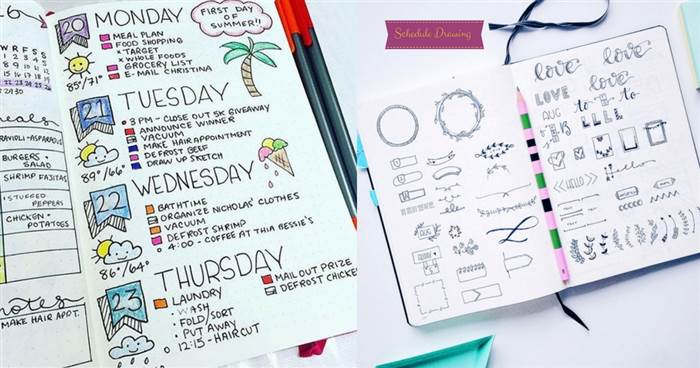 W R F S S
meals
RAVIOLI + ASPARAGUS
BURGERS +
SALAD
SHRIMP FAJITAS
STUFFED
PEPPERS
CHICKEN +
POTATOES
notes
MAKE HAIR APPT.
20
MONDAY
MEAL PLAN
FOOD SHOPPING
x TARGET
x WHOLE FOODS
GROCERY LIST
E-MAIL CHRISTINA
85°/71°
FIRST DAY
OF
SUMMER!!
21
TUESDAY
3 PM - CLOSE OUT 5K GIVEAWAY
ANNOUNCE WINNER
VACUUM
MAKE HAIR APPOINTMENT
DEFROST BEEF
DRAW UP SKETCH
89°/66°
22
WEDNESDAY
BATHTIME
ORGANIZE NICHOLAS' CLOTHES
VACUUM
DEFROST SHRIMP
4:00 - COFFEE AT THIA BESSIE'S
86°/64°
23
THURSDAY
LAUNDRY
WASH
FOLD/SORT
PUT AWAY
12:15 - HAIRCUT
MAIL OUT PRIZE
DEFROST CHICKEN
Schedule Drawing
love
love
love
LOVE
love
AUG
to
to
LLLL
HELLO
hello
AUG